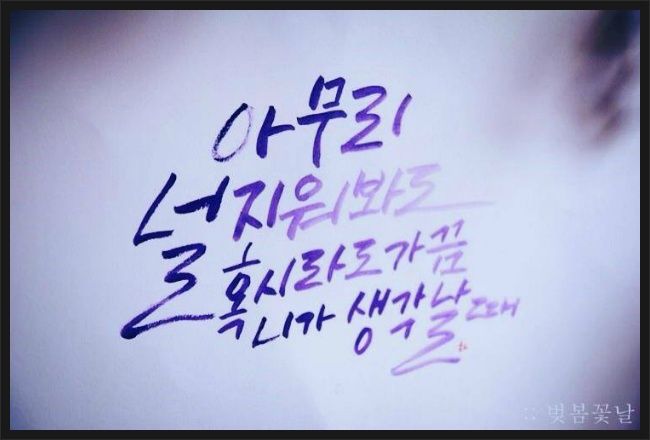 아무리
널 지워봐도
혹시라도 가끔
니가 생각날 때
:: 벚봄꽃날